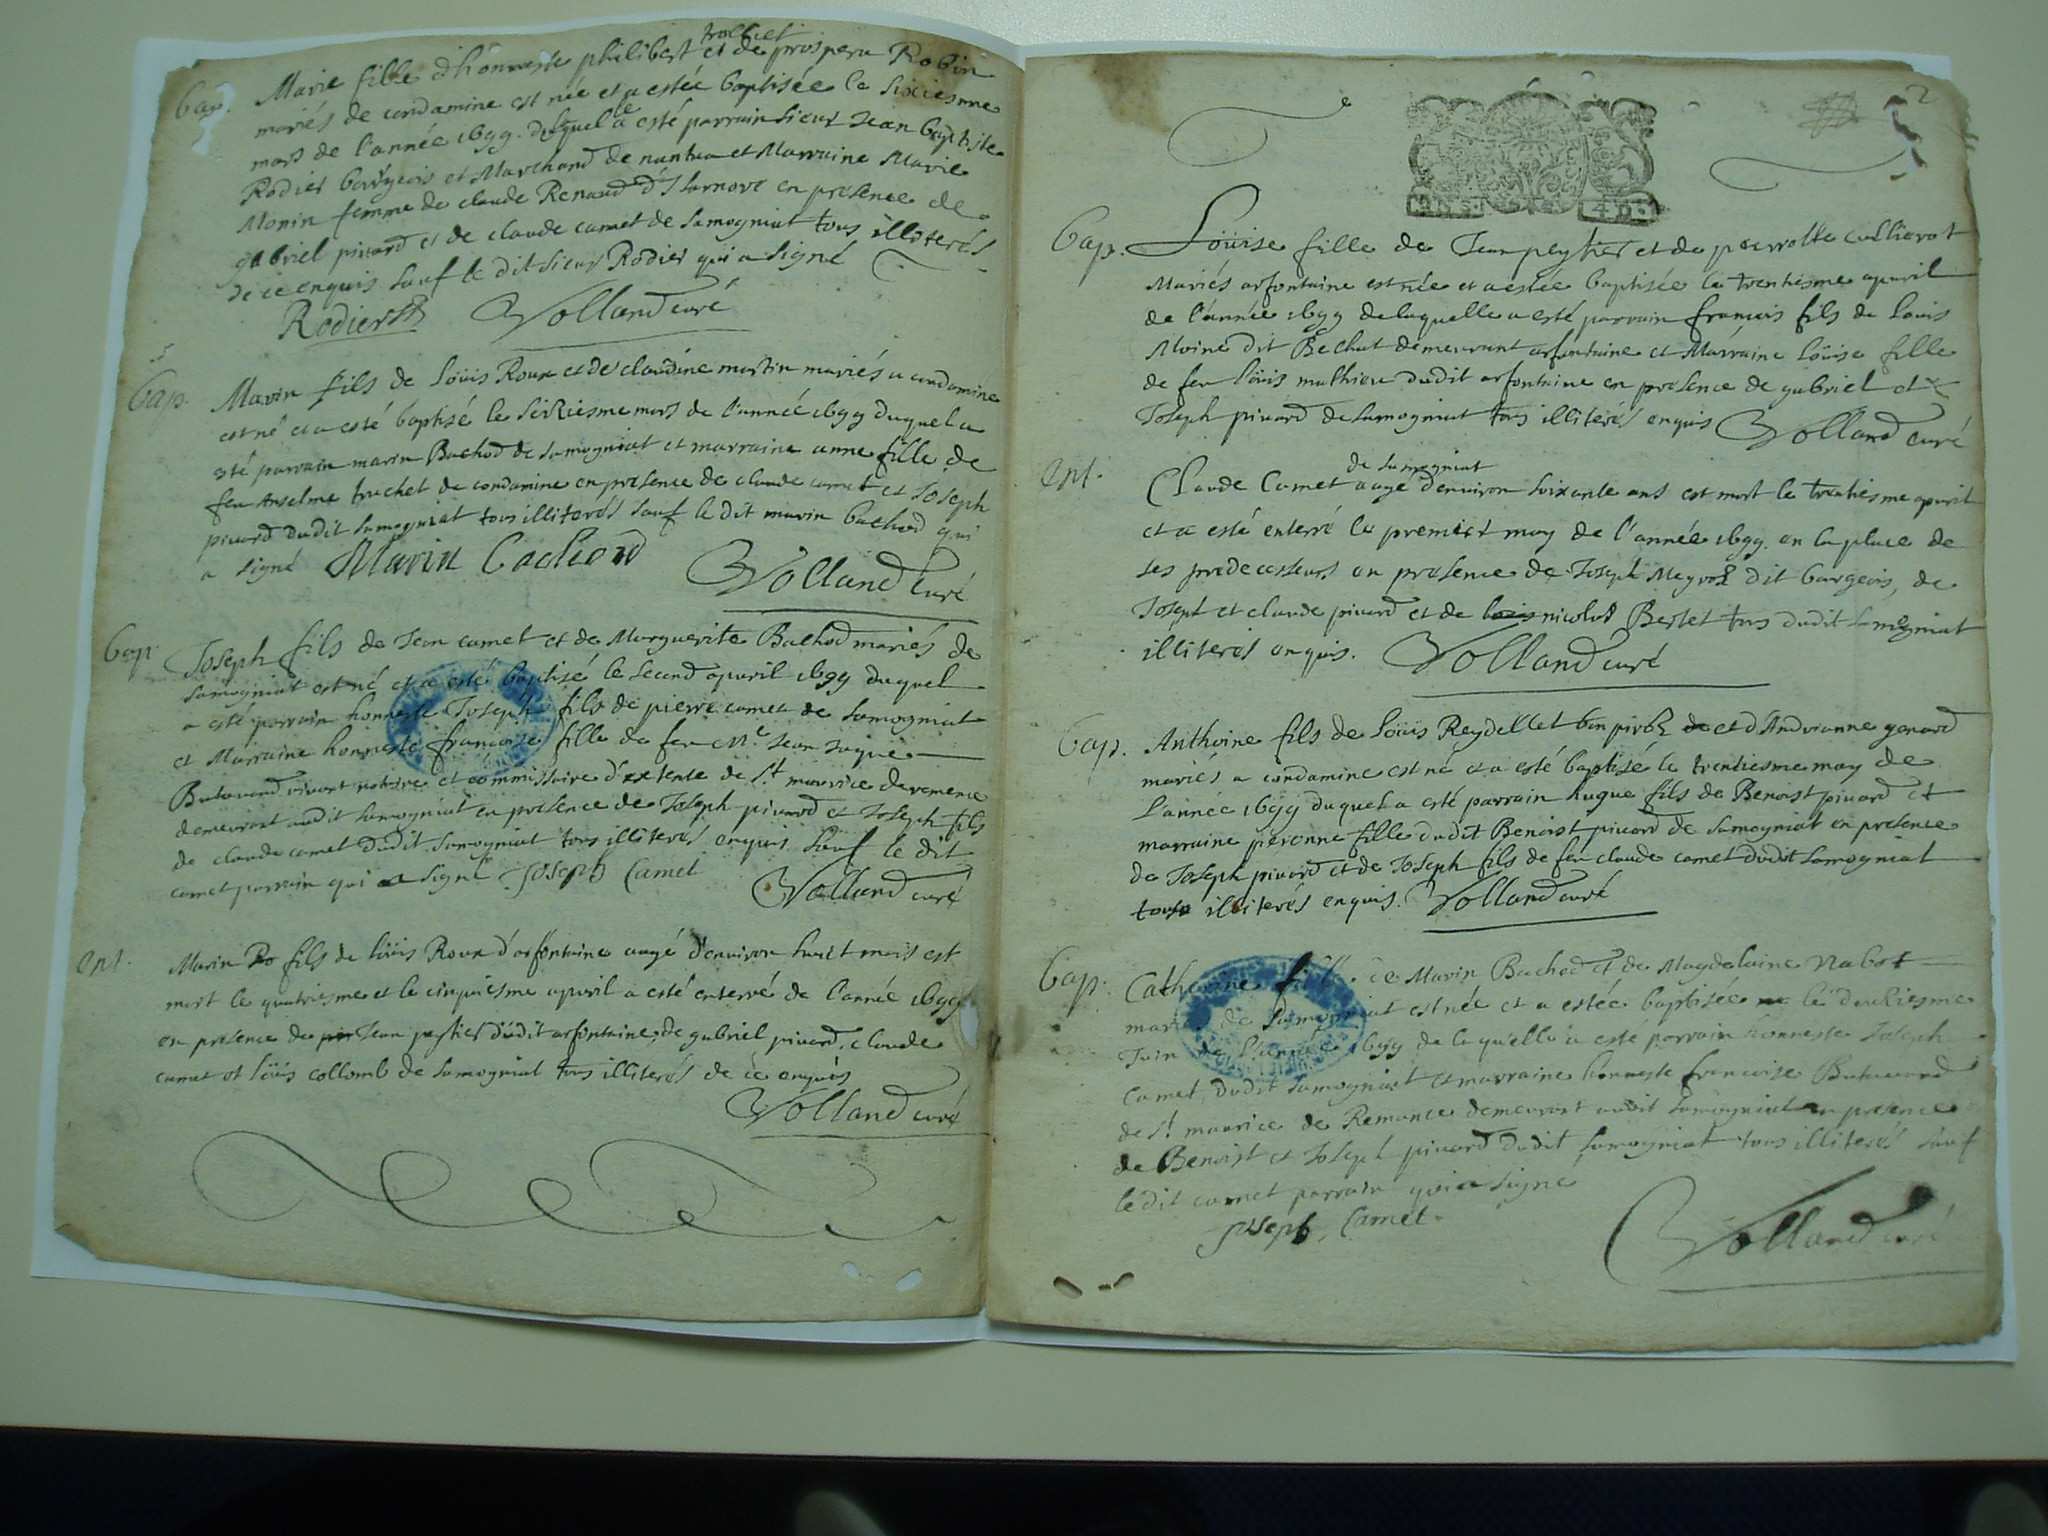 trolliet
Bap. Marie fille d'honneste philibert et de prospera Robin
mariés de condamine est née et a estée baptisée le sixiesme
mars de l'année 1699. duquel a esté parrain sieur Jean baptiste
Rodier bourgeois et Marchand de nantua et Marraine Marie
Monin femme de claude Renaud d'Isarnore en presence de
gabriel pivard et de claude camet de samogniat tous illiterés
de ce enquis sauf le dit sieur Rodier qui a signé
Rodier Volland curé
Bap. Marin fils de Loüis Roux et de claudine martin mariés a condamine
est né et a esté baptisé le seiziesme mars de l'année 1699 duquel a
esté parrain marin Bachod de samogniat et marraine anne fille de
feu Anselme truchet de condamine en presence de claude camet et Joseph
pivard dudit samogniat tous illiterés sauf le dit marin bachod qui
a signé Marin Bachod Volland curé
Bap. Joseph fils de Jean camet et de Marguerite Bachod mariés de
samogniat est né et a esté baptisé le second apvril 1699 duquel
a esté parrain honneste Joseph fils de pierre camet de samogniat
et Marraine honneste francoise fille de feu Me Jean Jaque
Butavand vivant notaire et commissaire d'extente de St maurice de remence
demeurant audit samogniat en presence de Joseph pivard et Joseph fils
de claude camet dudit samogniat tous illiterés enquis sauf le dit
camet parrain qui a signé Joseph Camet Volland curé
Ent. Marin Ro fils de loüis Roux d'arfontaine aagé d'environ huict mois est
mort le quatriesme et le cinquiesme apvril a esté enterré de l'année 1699
en presence de Jean peystier dudit arfontaine, de gabriel pivard, claude
camet et loüis collomb de samogniat tous illiterés de ce enquis
Volland curé
2
Bap. Loüise fille de Jean peystier et de perrotte cullierat
Mariés arfontaine est née et a estée baptisée le trentiesme apvril
de l'année 1699 de laquelle a esté parrain francois fils de loüis
Moine dit Bechat demeurant arfontaine et Marraine loüise fille
de feu loüis mathieu dudit arfontaine en presence de gabriel et
Joseph pivard de samogniat tous illiterés enquis Volland curé
de samogniat
Ent. Claude Camet aagé d'environ soixante ans est mort le trentiesme apvril
et a esté enterré le premier may de l'année 1699. en la place de
ses predecesseurs en presence de Joseph dit bourgeois, de
Joseph et claude pivard et de loüis nicolas Berlet tous dudit samogniat
illiterés enquis. Volland curé
Bap. Anthoine fils de Loüis Reydellet et d'Andrianne genard
mariés a condamine est né et a esté baptisé le trentiesme may de
l'année 1699 duquel a esté parrain hugue fils de Benoist pivard et
marraine peronne fille dudit Benoist pivard de samogniat en presence
de Joseph pivard et de Joseph fils de feu claude camet dudit samogniat
tous illiterés enquis. Volland curé
Bap. Catherine fille de Marin Bachod et de Magdelaine Nabot
mariés de samogniat est née et a estée baptisée le deuxiesme
Juin de l'année 1699 de laquelle a esté parrain honneste Joseph
Camet dudit samogniat et marraine honneste francoise Butavand
de St maurice de Remance demeurant audit samogniat en presence
de Benoist et Joseph pivard dudit samogniat tous illiterés sauf
ledit camet parrain qui a signé
Joseph Camet. Volland curé